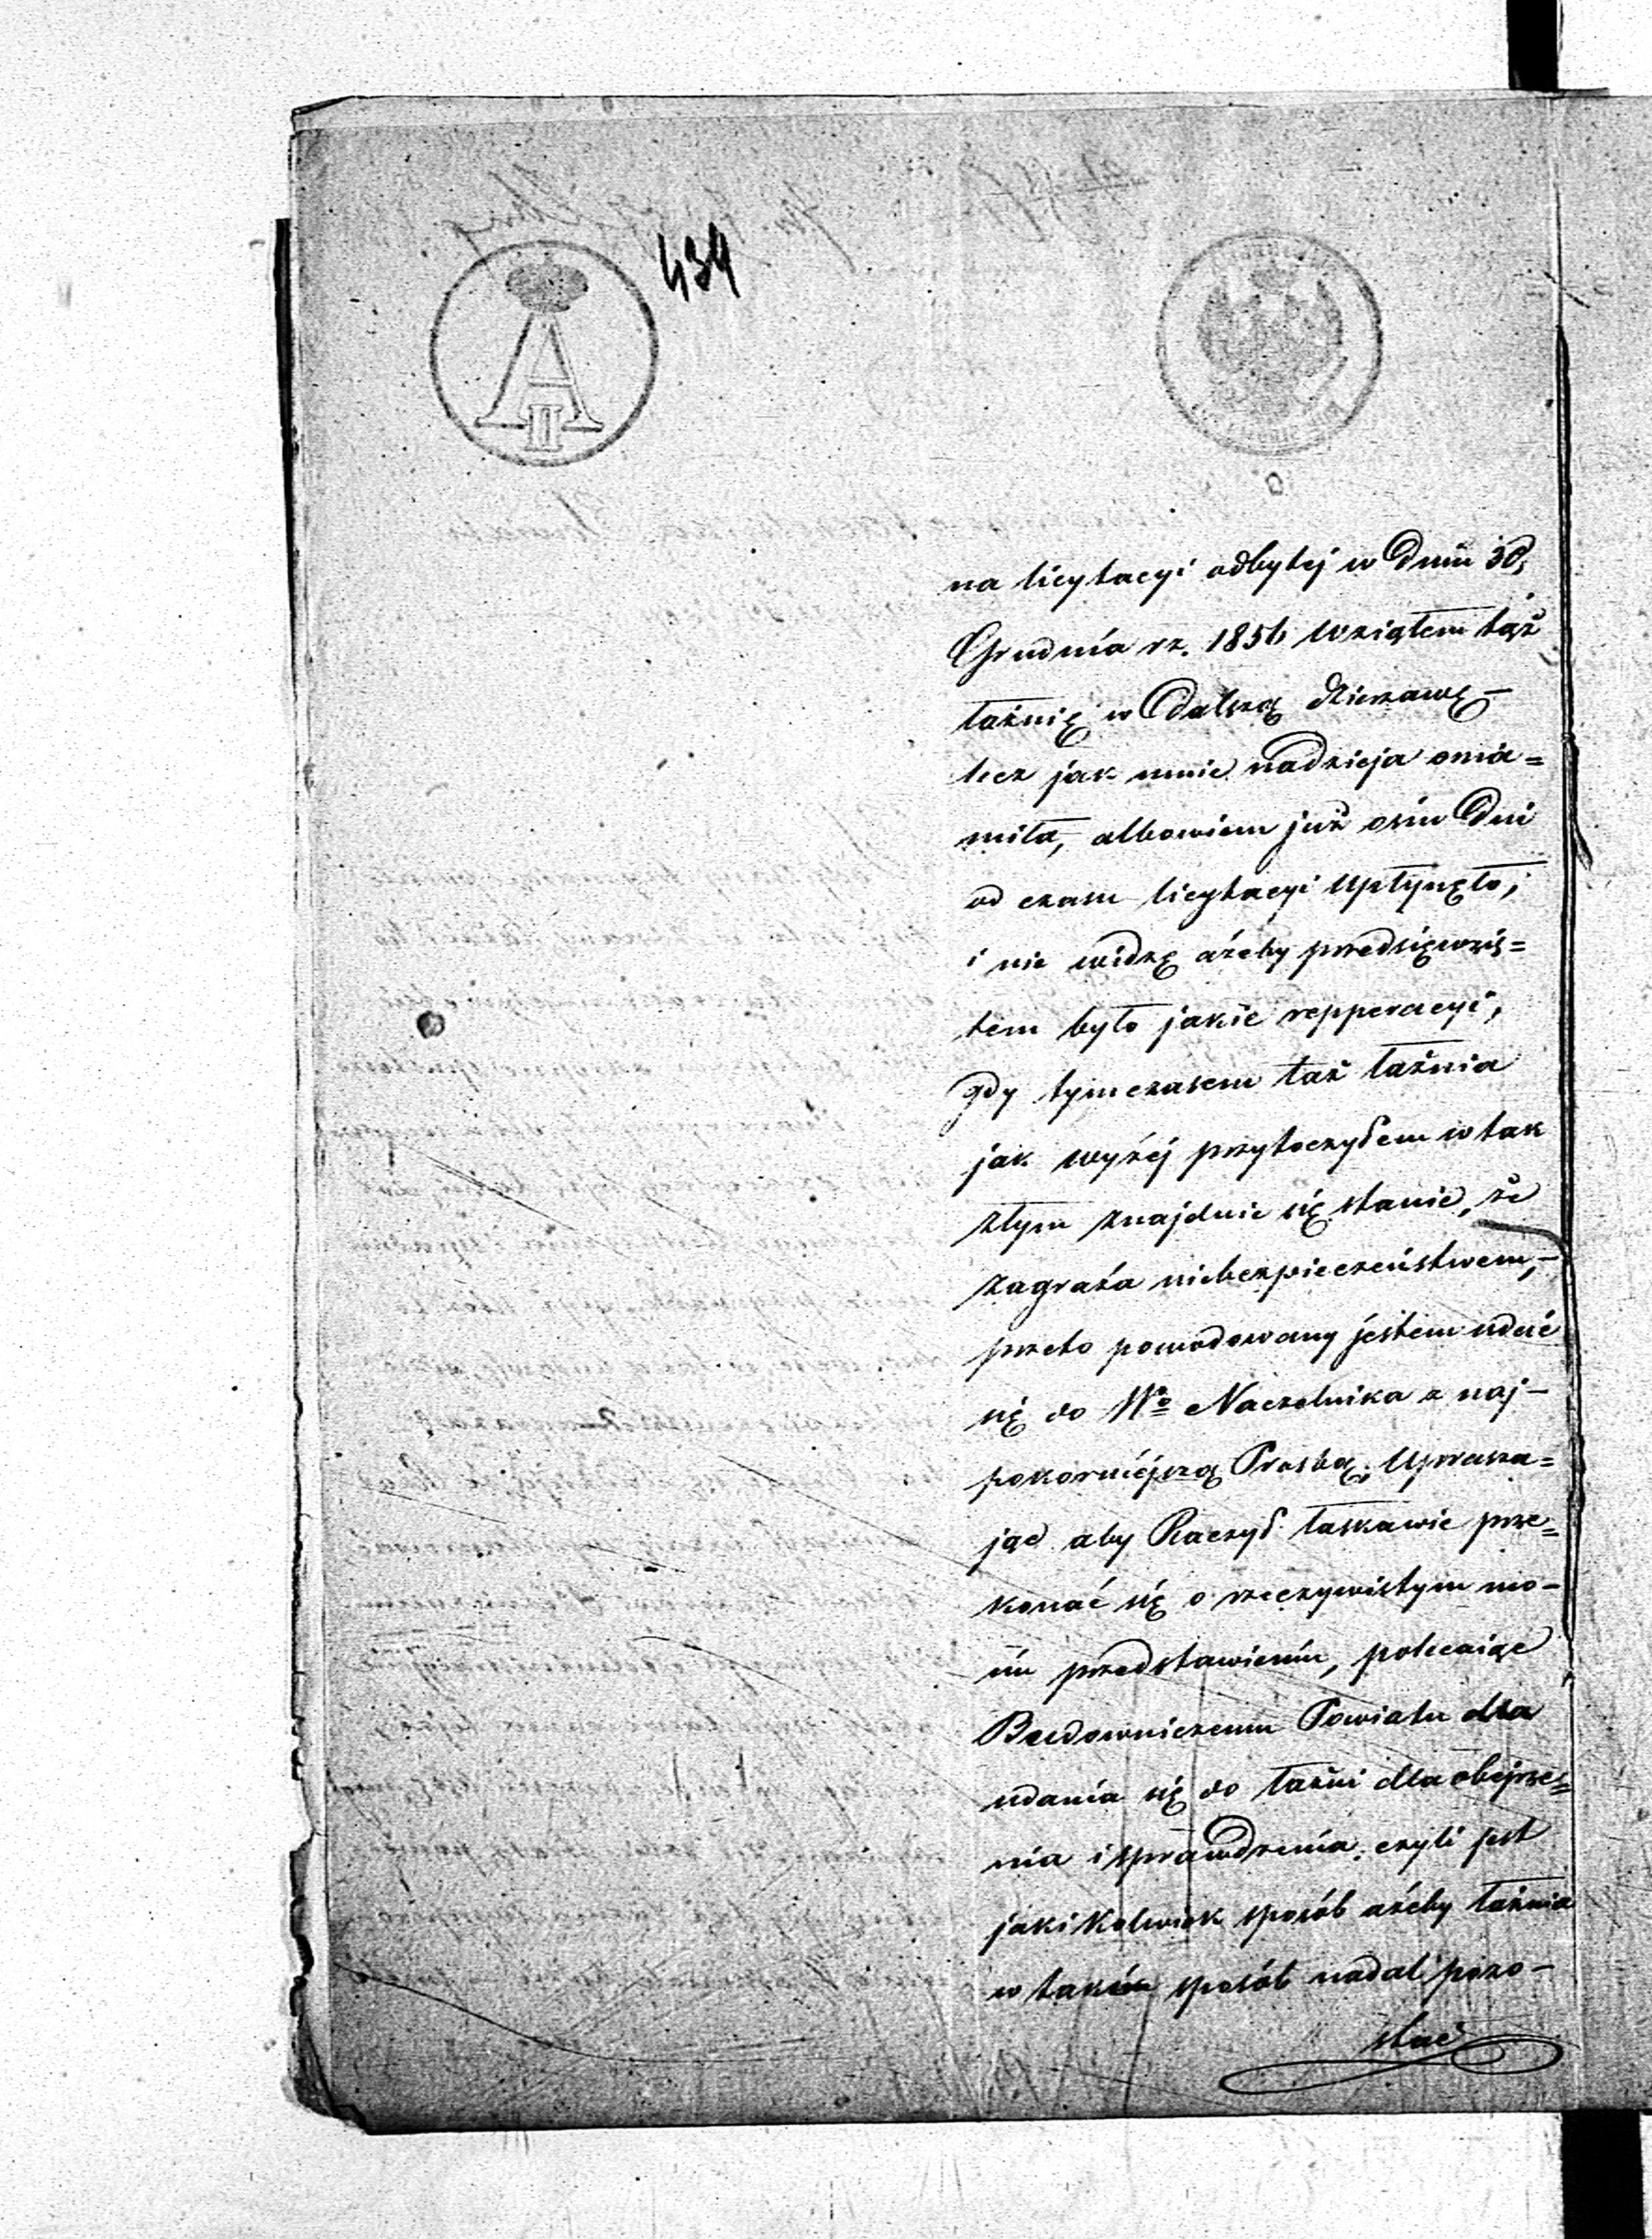 434
A
II
na licytacyi odbytej w Dniu 30,
Grudnia rz. 1856 wziąłem tąż
łaźnię w Dalszą dzierzawę –
lecz jak mnie nadzieja omia=
miła, albowiem już osim Dni
od czasu licytacyi upłynęło,
i nie widzę ażeby predsięwzię=
tem było jakie repperacyi,
gdy tymczasem taż łaźnia
jak wyżéj przytoczyłem w tak
złym znajduie się stanie, że
zagraża niebezpieczeństwem, –
przeto powodowany jestem udać
się do Wº Naczelnika z naj–
pokorniéjszą Prosbą, Uprasza=
jąc aby Raczył łaskawie prze=
konać się o rzeczywistym mo–
im przedstawieniu, polecaiąc
Budowniczemu Powiatu dla
udania się do łaźni dla obejrze=
nia i sprawdzenia, czyli jest
jakikolwiek sposób ażeby łaźnia
w takim sposób nadal pozo–
stać